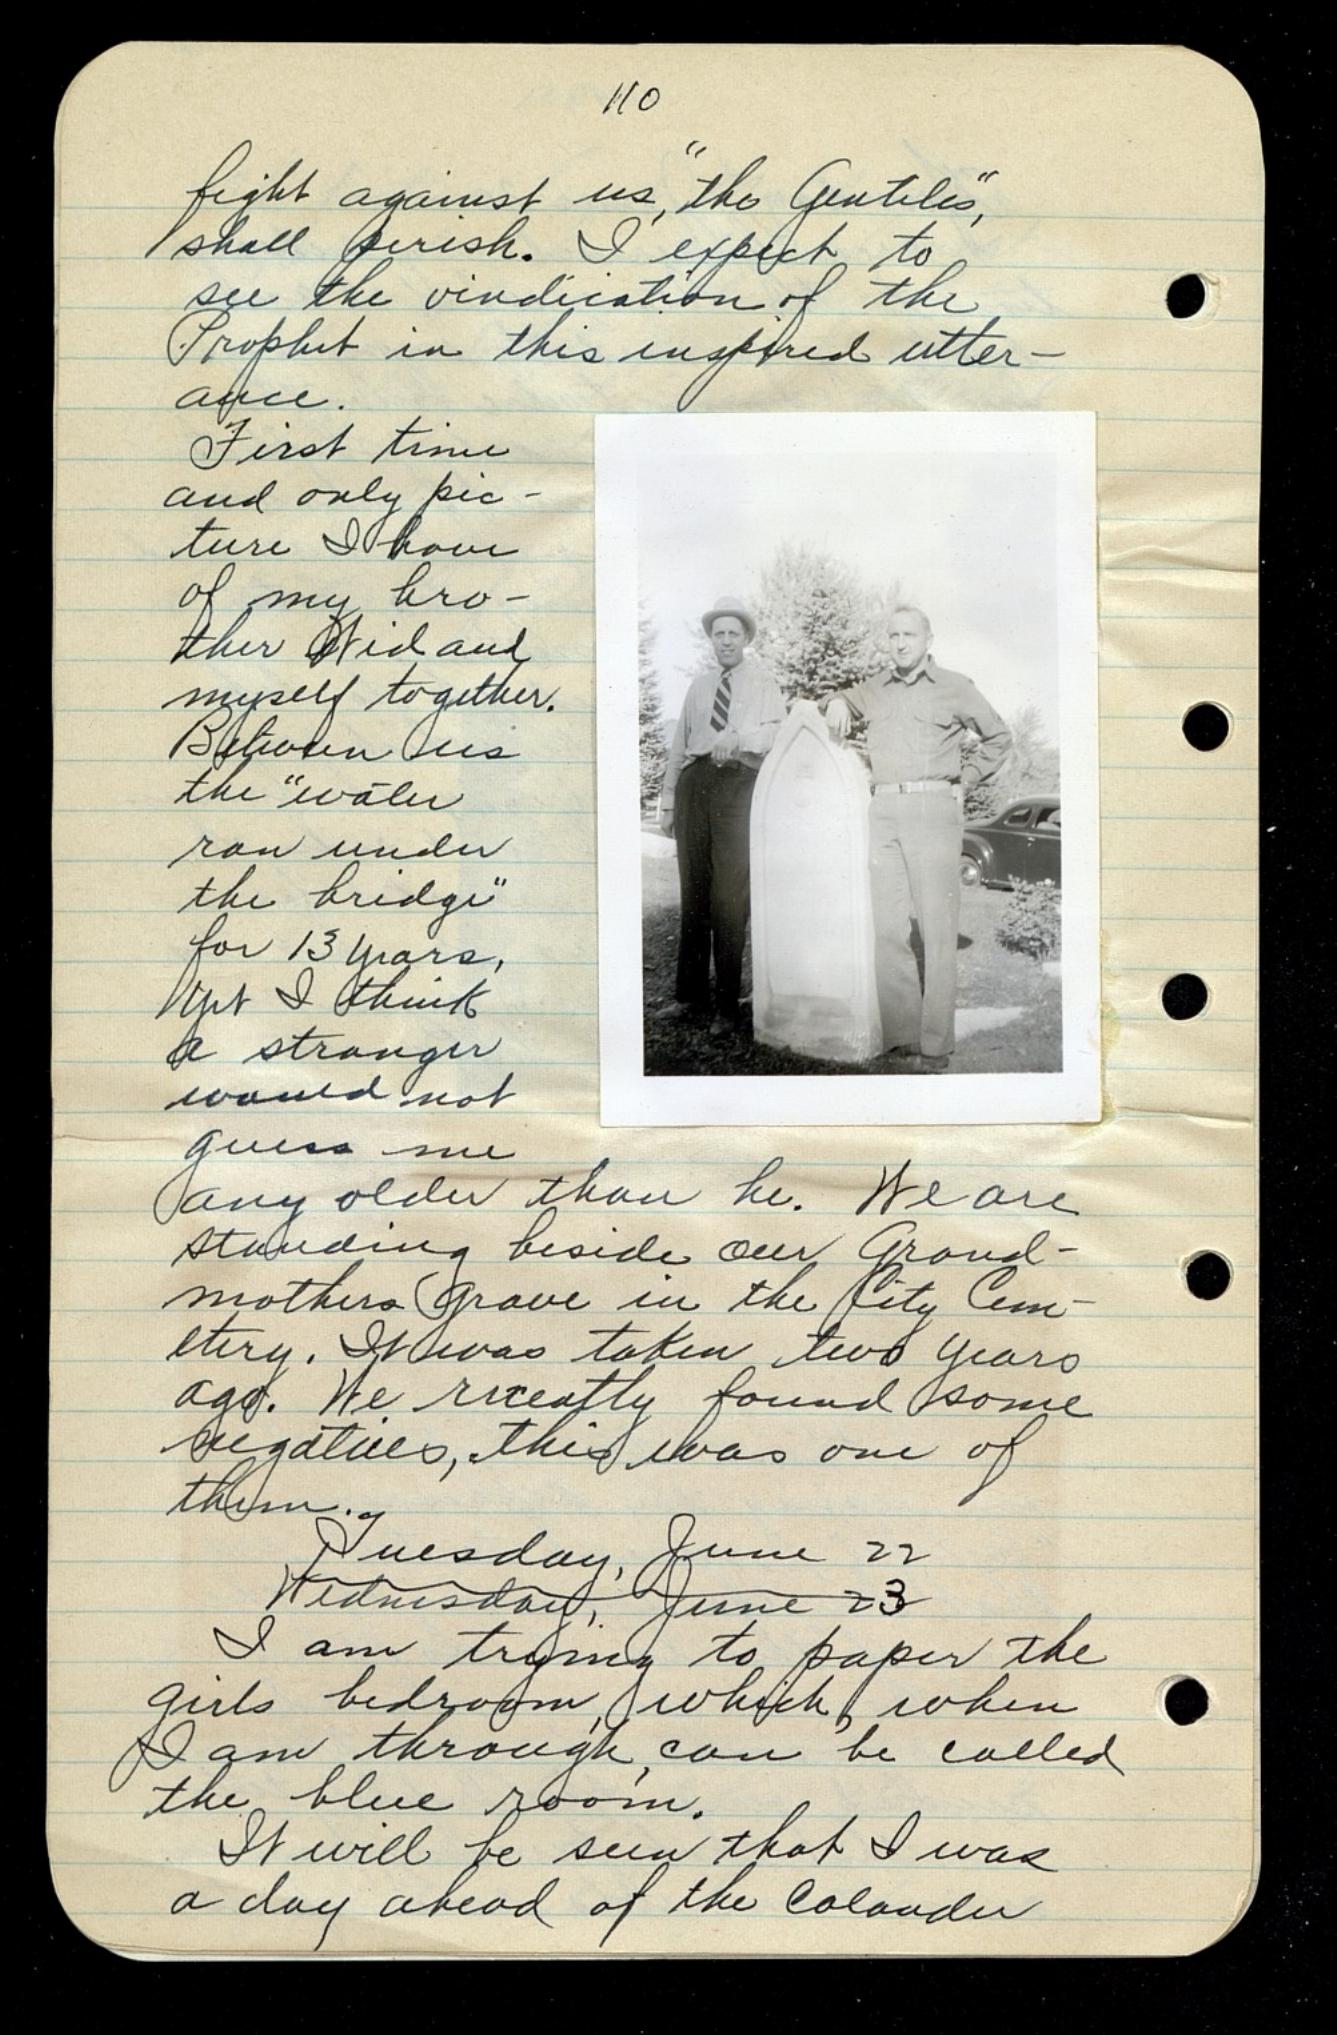 110
fight against us, "the Gentiles",
shall perish. I expect to
see the vindication of the
Prophet in this inspired utter-
ance.
First time
and only pic-
ture I have
of my bro-
ther Wid and
myself together.
Between us
the "water
ran under
the bridge"
for 13 years,
Yet I think
a stranger
would not
guess me
any older than he. We are
standing beside our Grand-
mothers grave in the City Cem-
etery. It was taken two years
ago. We recently found some
negatives, this was one of
them.
Tuesday, June 22
Wednesday, June 23
I am trying to paper the
girls bedroom, which, when
I am through, can be called
the blue room.
It will be seen that I was
a day ahead of the Calander